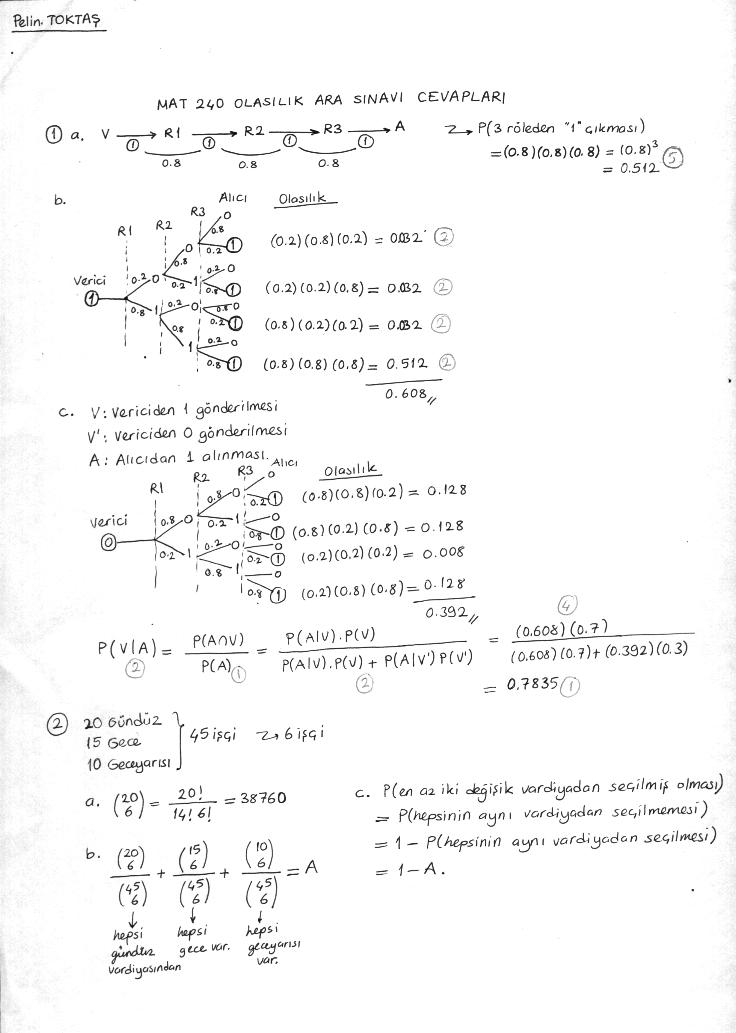 Pelin TOKTAŞ
MAT 240 OLASILIK ARA SINAVI CEVAPLARI
① a. V → R1 → R2 → R3 → A   P(3 röleden "1" çıkması)
① ① ① ①
0.8 0.8 0.8
= (0.8)(0.8)(0.8) = (0.8)³
= 0.512 ⑤
b.
R1 R2 R3 Alıcı Olasılık
Verici
①
0.2 0 0.8 0 0.8 0
0.2 ① (0.2)(0.8)(0.2) = 0.032 ②
0.2 1 0.2 0
0.8 ① (0.2)(0.2)(0.8) = 0.032 ②
0.8 1 0.2 0 0.8 0
0.2 ① (0.8)(0.2)(0.2) = 0.032 ②
0.8 1 0.2 0
0.8 ① (0.8)(0.8)(0.8) = 0.512 ②
0.608
c. V: Vericiden 1 gönderilmesi
V': Vericiden 0 gönderilmesi
A: Alıcıdan 1 alınması.
R1 R2 R3 Alıcı Olasılık
Verici
⓪
0.8 0 0.8 0 0
0.2 ① (0.8)(0.8)(0.2) = 0.128
0.2 1 0
0.8 ① (0.8)(0.2)(0.8) = 0.128
0.2 1 0.2 0 0
0.2 ① (0.2)(0.2)(0.2) = 0.008
0.8 1 0
0.8 ① (0.2)(0.8)(0.8) = 0.128
0.392
P(V|A) = P(A∩V) / P(A) = P(A|V).P(V) / P(A|V).P(V) + P(A|V')P(V') = (0.608)(0.7) / (0.608)(0.7) + (0.392)(0.3)
② ① ② ④
= 0.7835 ①
② 20 Gündüz
15 Gece
10 Geceyarısı
} 45 işçi 6 işçi
a. (20 6) = 20! / 14! 6! = 38760
b. (20 6) / (45 6) + (15 6) / (45 6) + (10 6) / (45 6) = A
hepsi gündüz vardiyasından
hepsi gece var.
hepsi geceyarısı var.
c. P(en az iki değişik vardiyadan seçilmiş olması)
= P(hepsinin aynı vardiyadan seçilmemesi)
= 1 - P(hepsinin aynı vardiyadan seçilmesi)
= 1 - A.